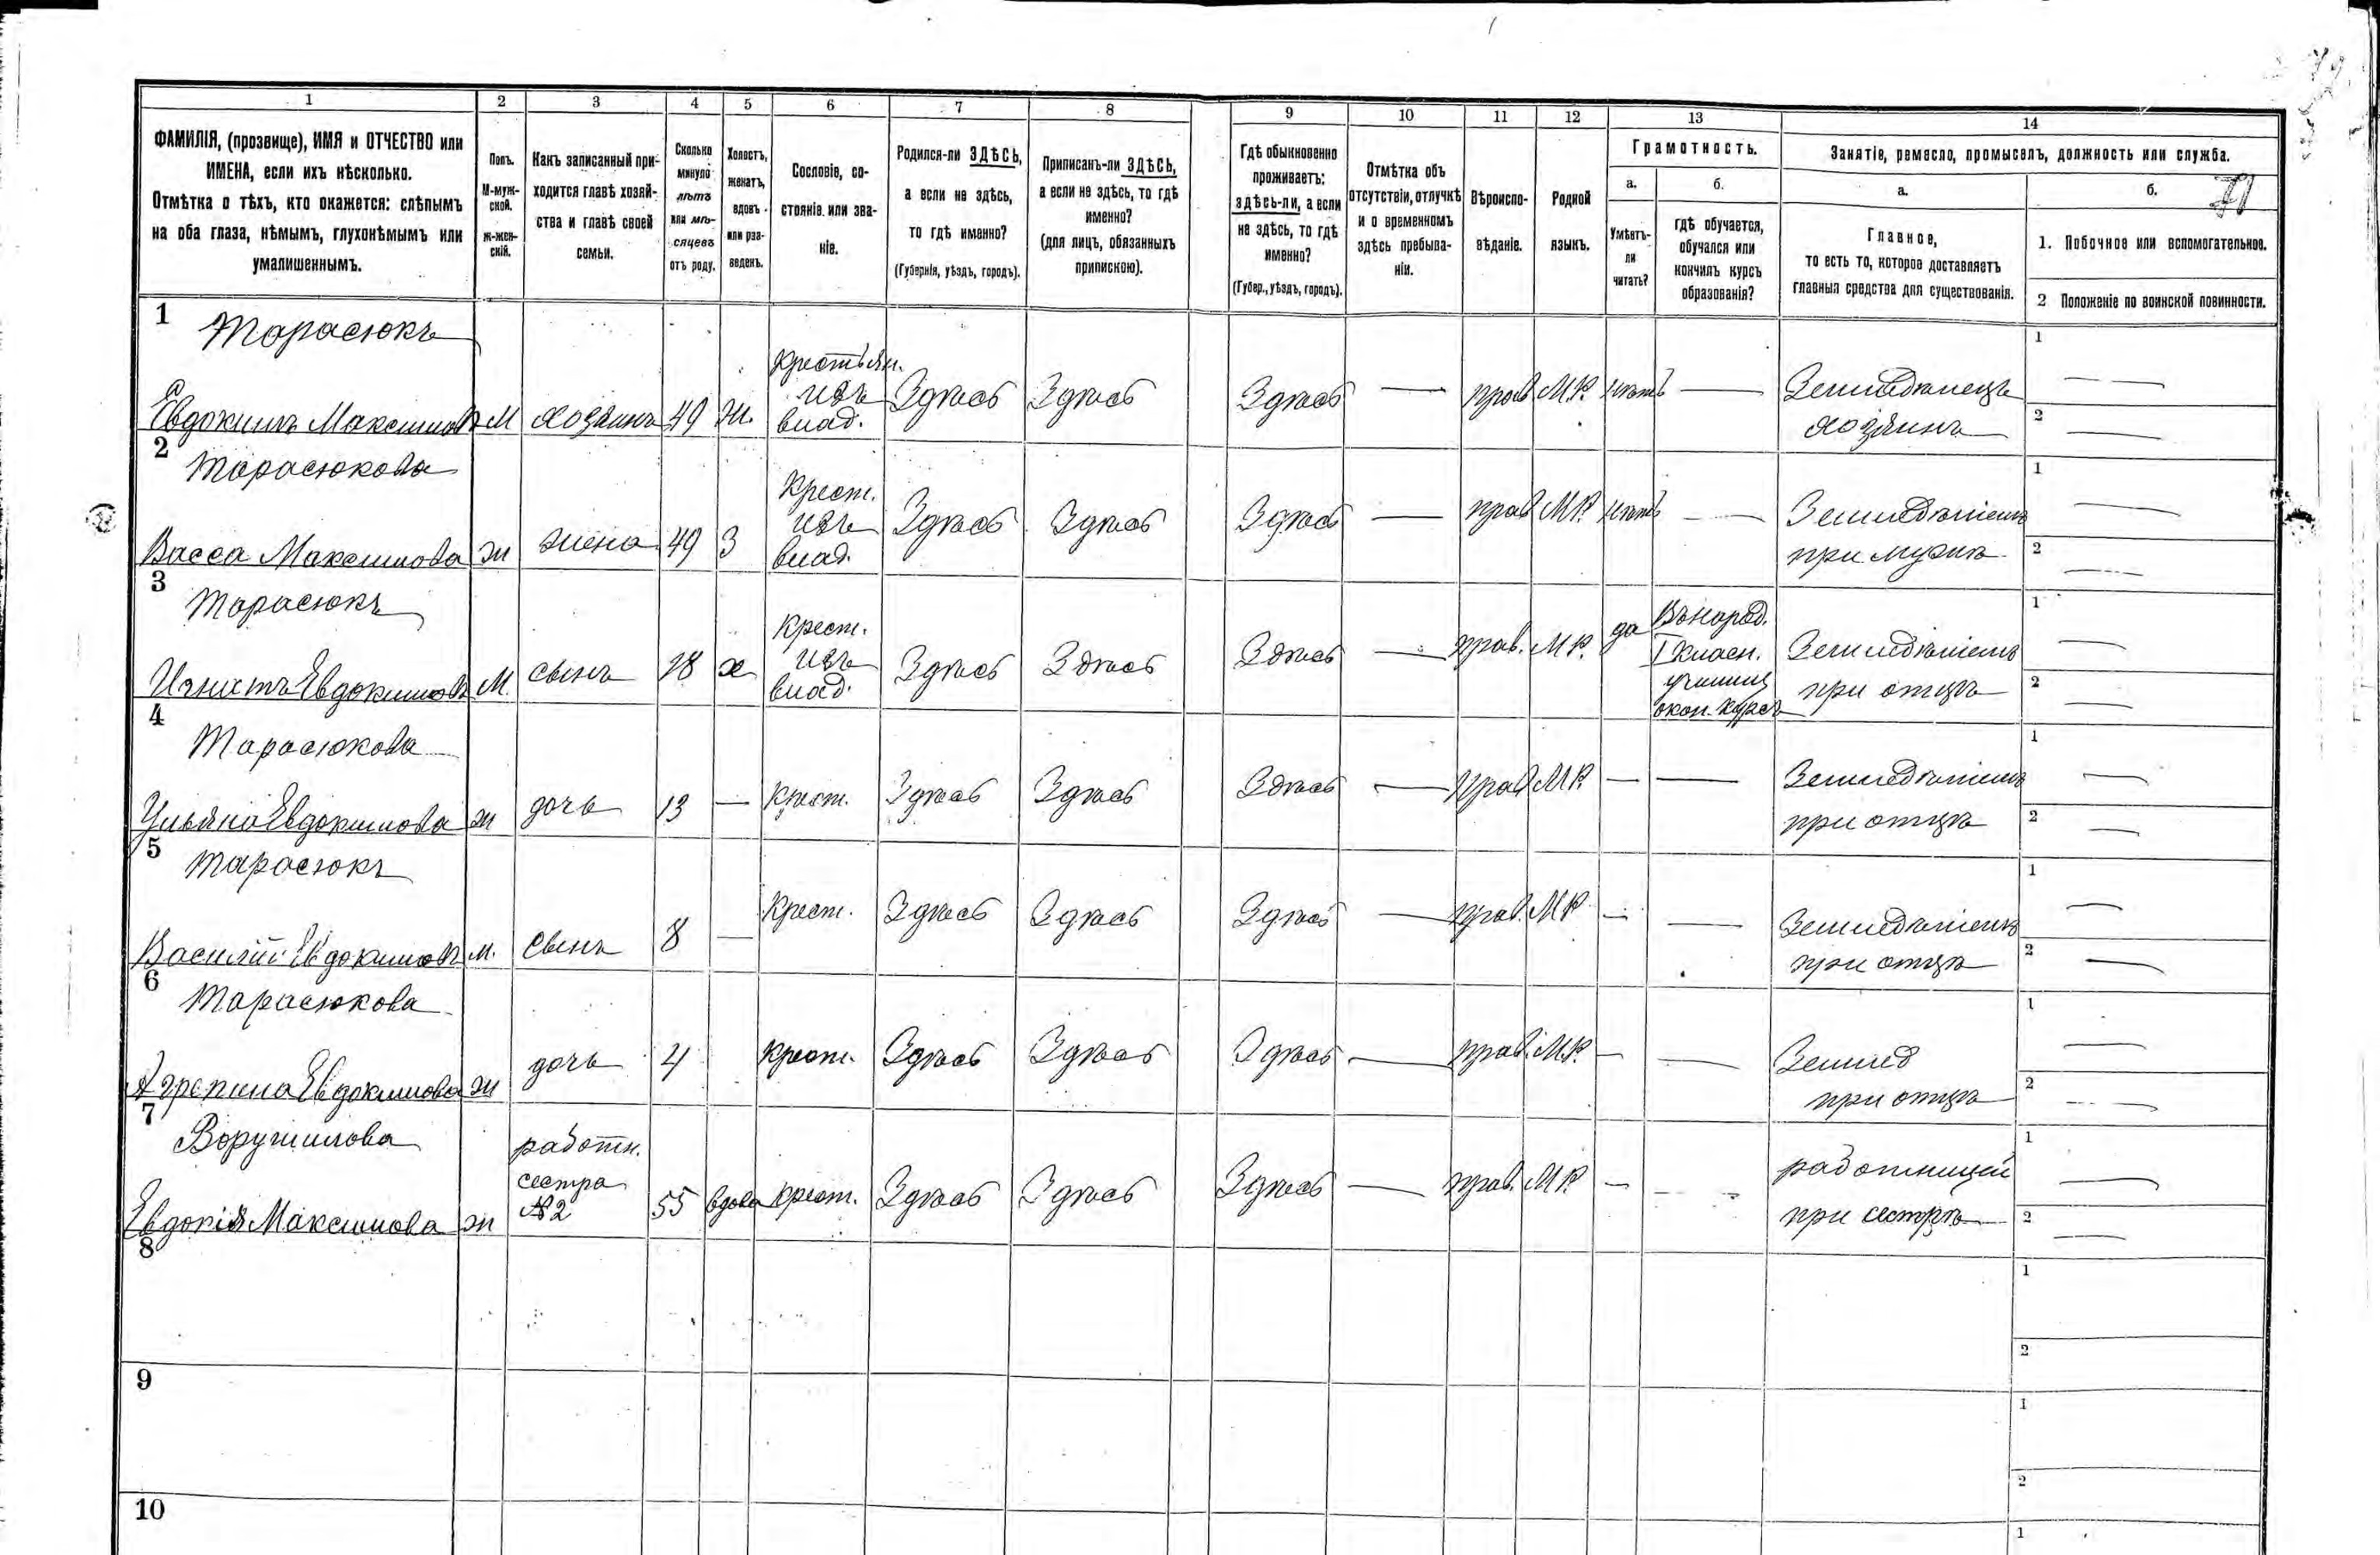 1 2 3 4 5 6 7 8 9 10 11 12 13 14
ФАМИЛІЯ, (прозвище), ИМЯ и ОТЧЕСТВО или
ИМЕНА, если ихъ нѣсколько.
Отмѣтка о тѣхъ, кто окажется: слѣпымъ
на оба глаза, нѣмымъ, глухонѣмымъ или
умалишеннымъ.
Полъ.
М-муж-
ской.
ж-жен-
скій.
Какъ записанный при-
ходится главѣ хозяй-
ства и главѣ своей
семьи.
Сколько
минуло
лѣтъ
или мѣ-
сяцевъ
отъ роду.
Холостъ,
женатъ,
вдовъ
или раз-
веденъ.
Сословіе, со-
стояніе или зва-
ніе.
Родился-ли ЗДѢСЬ,
а если не здѣсь,
то гдѣ именно?
(Губернія, уѣздъ, городъ).
Приписанъ-ли ЗДѢСЬ,
а если не здѣсь, то гдѣ
именно?
(для лицъ, обязанныхъ
припискою).
Гдѣ обыкновенно
проживаетъ:
здѣсь-ли, а если
не здѣсь, то гдѣ
именно?
(Губер., уѣздъ, городъ).
Отмѣтка объ
отсутствіи, отлучкѣ
и о временномъ
здѣсь пребыва-
ніи.
Вѣроиспо-
вѣданіе.
Родной
языкъ.
Грамотность.
а.
Умѣетъ-
ли
читать?
б.
гдѣ обучается,
обучался или
кончилъ курсъ
образованія?
Занятіе, ремесло, промыселъ, должность или служба.
а.
Главное,
то есть то, которое доставляетъ
главныя средства для существованія.
б.
71
1. Побочное или вспомогательное.
2 Положеніе по воинской повинности.
1 Тарасюкъ
Евдокимъ Максимовъ М хозяинъ 49 ж. Крестьян. изъ влад. Здѣсь Здѣсь Здѣсь — прав М.Р. нѣтъ — Земледѣлецъ хозяинъ 1 — 2 —
2 Тарасюкова
Васса Максимова ж жена 49 З Крест. изъ влад. Здѣсь Здѣсь Здѣсь — прав М.Р. нѣтъ — Земледѣліемъ при мужѣ 1 — 2 —
3 Тарасюкъ
Игнатъ Евдокимовъ М. сынъ 18 х Крест. изъ влад. Здѣсь Здѣсь Здѣсь — прав. М.Р. да Въ народ. I класн. училищ окон. курсъ Земледѣліемъ при отцѣ 1 — 2 —
4 Тарасюкова
Ульяна Евдокимова ж дочь 13 — Крест. Здѣсь Здѣсь Здѣсь — Прав М.Р. — — Земледѣліемъ при отцѣ 1 — 2 —
5 Тарасюкъ
Василій Евдокимовъ м. сынъ 8 — Крест. Здѣсь Здѣсь Здѣсь — прав. М.Р. — — Земледѣліемъ при отцѣ 1 — 2 —
6 Тарасюкова
Агрепина Евдокимова ж дочь 4 Крест. Здѣсь Здѣсь Здѣсь — прав. М.Р. — — Землед при отцѣ 1 — 2 —
7 Воругшилова
Евдокія Максимова ж работн. сестра №2 55 вдова Крест. Здѣсь Здѣсь Здѣсь — прав. М.Р. — — работницей при сестрѣ 1 — 2 —
8 1
2
9 1
2
10 1